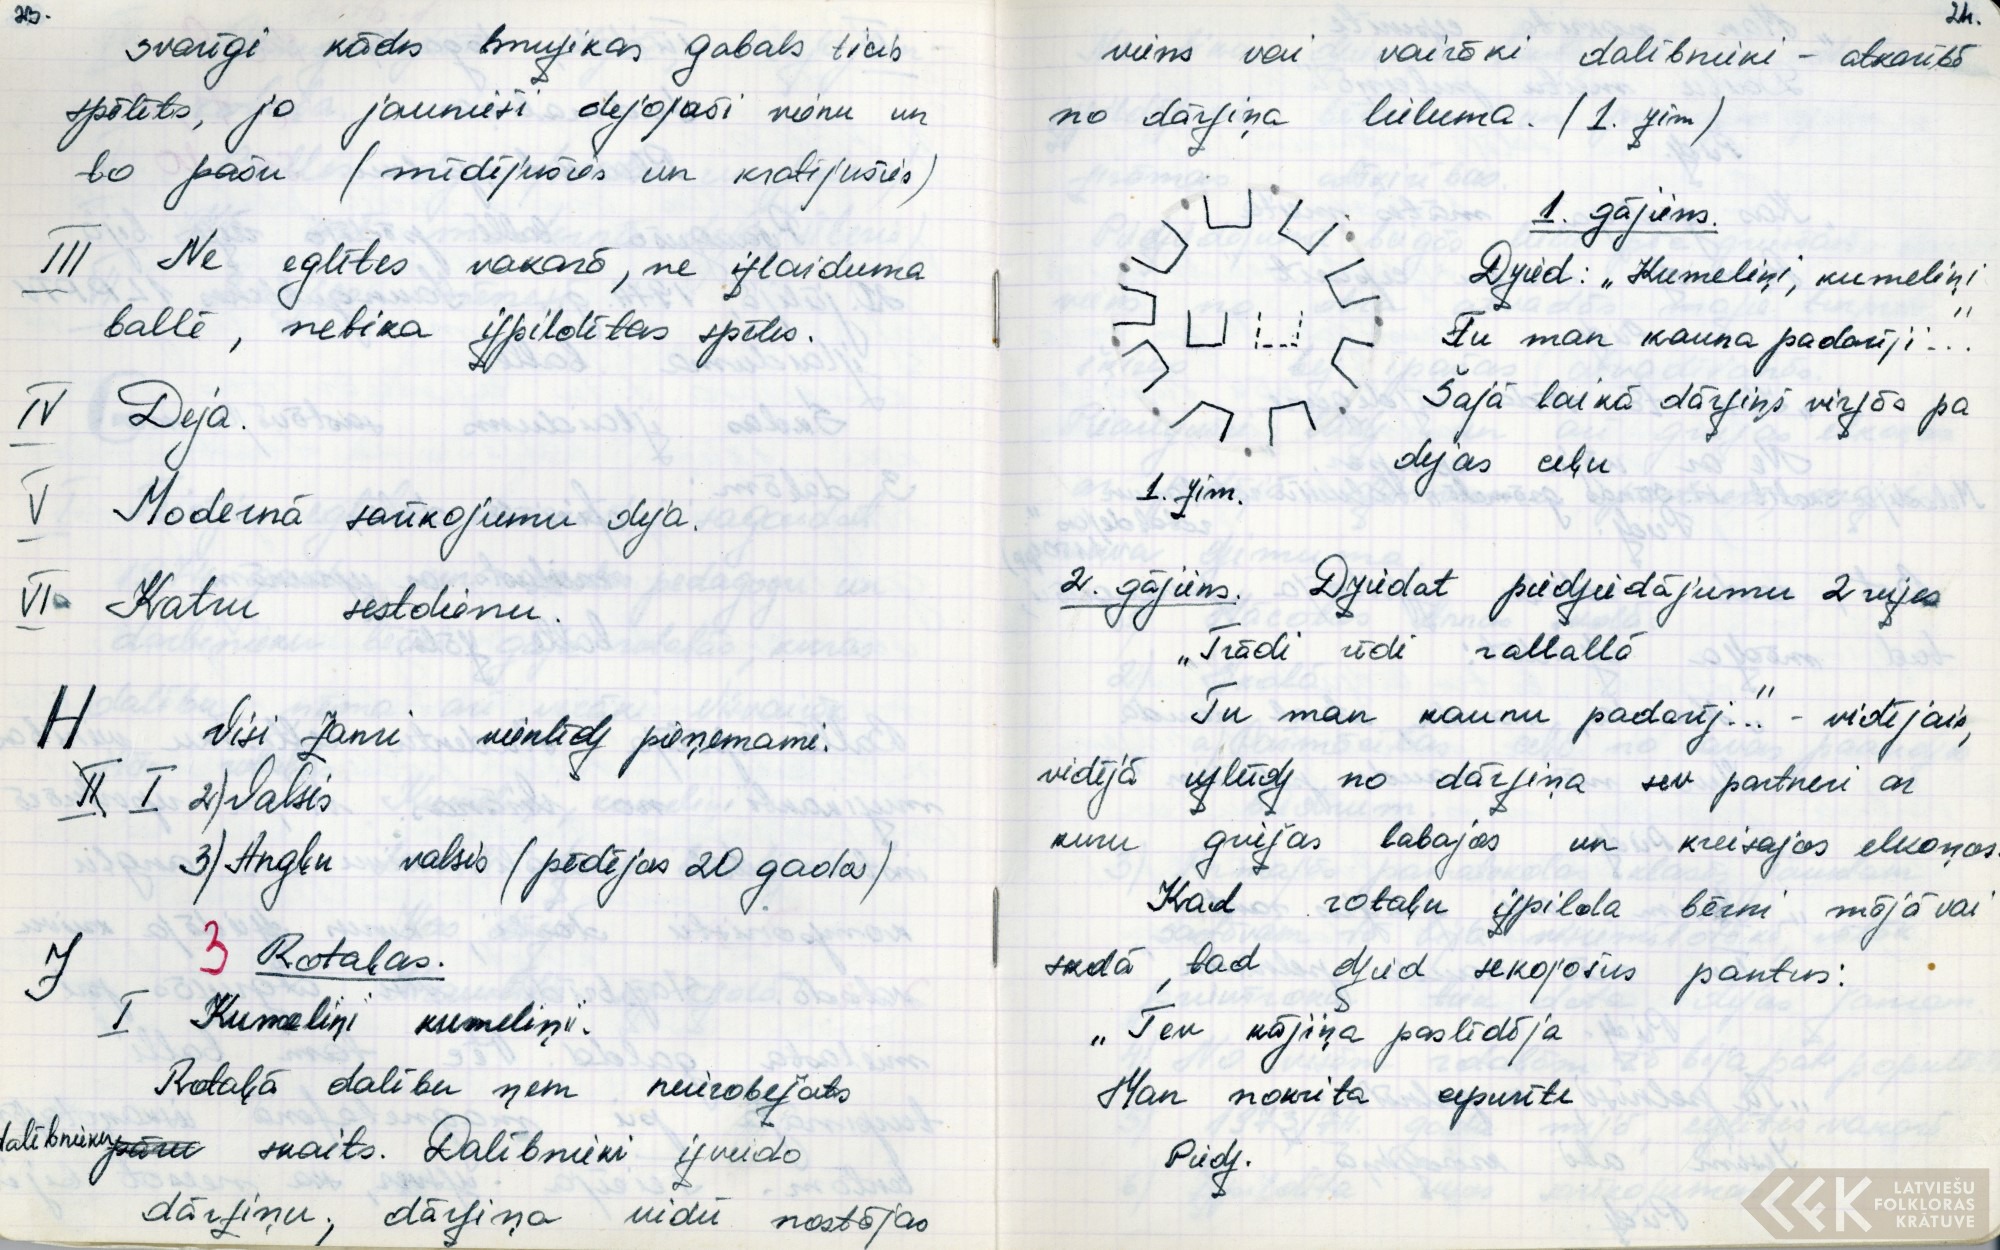 23.
svarīgi kāds muzikas gabals ticis
spēlēts, jo jaunieši dejojuši vienu un
to pašu (mīdījušies un kratījušies)
III Ne eglītes vakarā, ne izlaiduma
ballē, nebika izpildītas spēles.
IV Deja.
V Modernā sarīkojumu deja.
VI Katru sestdienu.
H Visi žanri vienlīdz pieņemami.
II I 2) Valsis
3) Angļu valsis (pēdējos 20 gados)
J 3 Rotaļas.
I Kumeliņi kumeliņi.
Rotaļā dalību ņem neierobežots
dalībnieku pāru skaits. Dalībnieki izveido
dārziņu, dārziņa vidū nostājas
24.
viens vai vairāki dalībnieki – atkarībā
no dārziņa lieluma. (1. zīm)
1. gājiens.
Dzied: „Kumeliņi, kumeliņi
Tu man kauna padarīji..."
Šajā laikā dārziņš virzās pa
dejas ceļu
1. zīm.
2. gājiens. Dziedat piedziedājumu 2 reizes
„Trādi rīdi rallallā
Tu man kaunu padarīj..." – vidējais,
vidējā uzlūdz no dārziņa sev partneri ar
kuru griežas labajos un kreisajos elkoņos.
Kad rotaļu izpilda bērni mājā vai
skolā, tad dzied sekojošus pantus:
„Tev kājiņa paslīdēja
Man nokrita cepurīte
Piedz.
LATVIEŠU
FOLKLORAS
KRĀTUVE